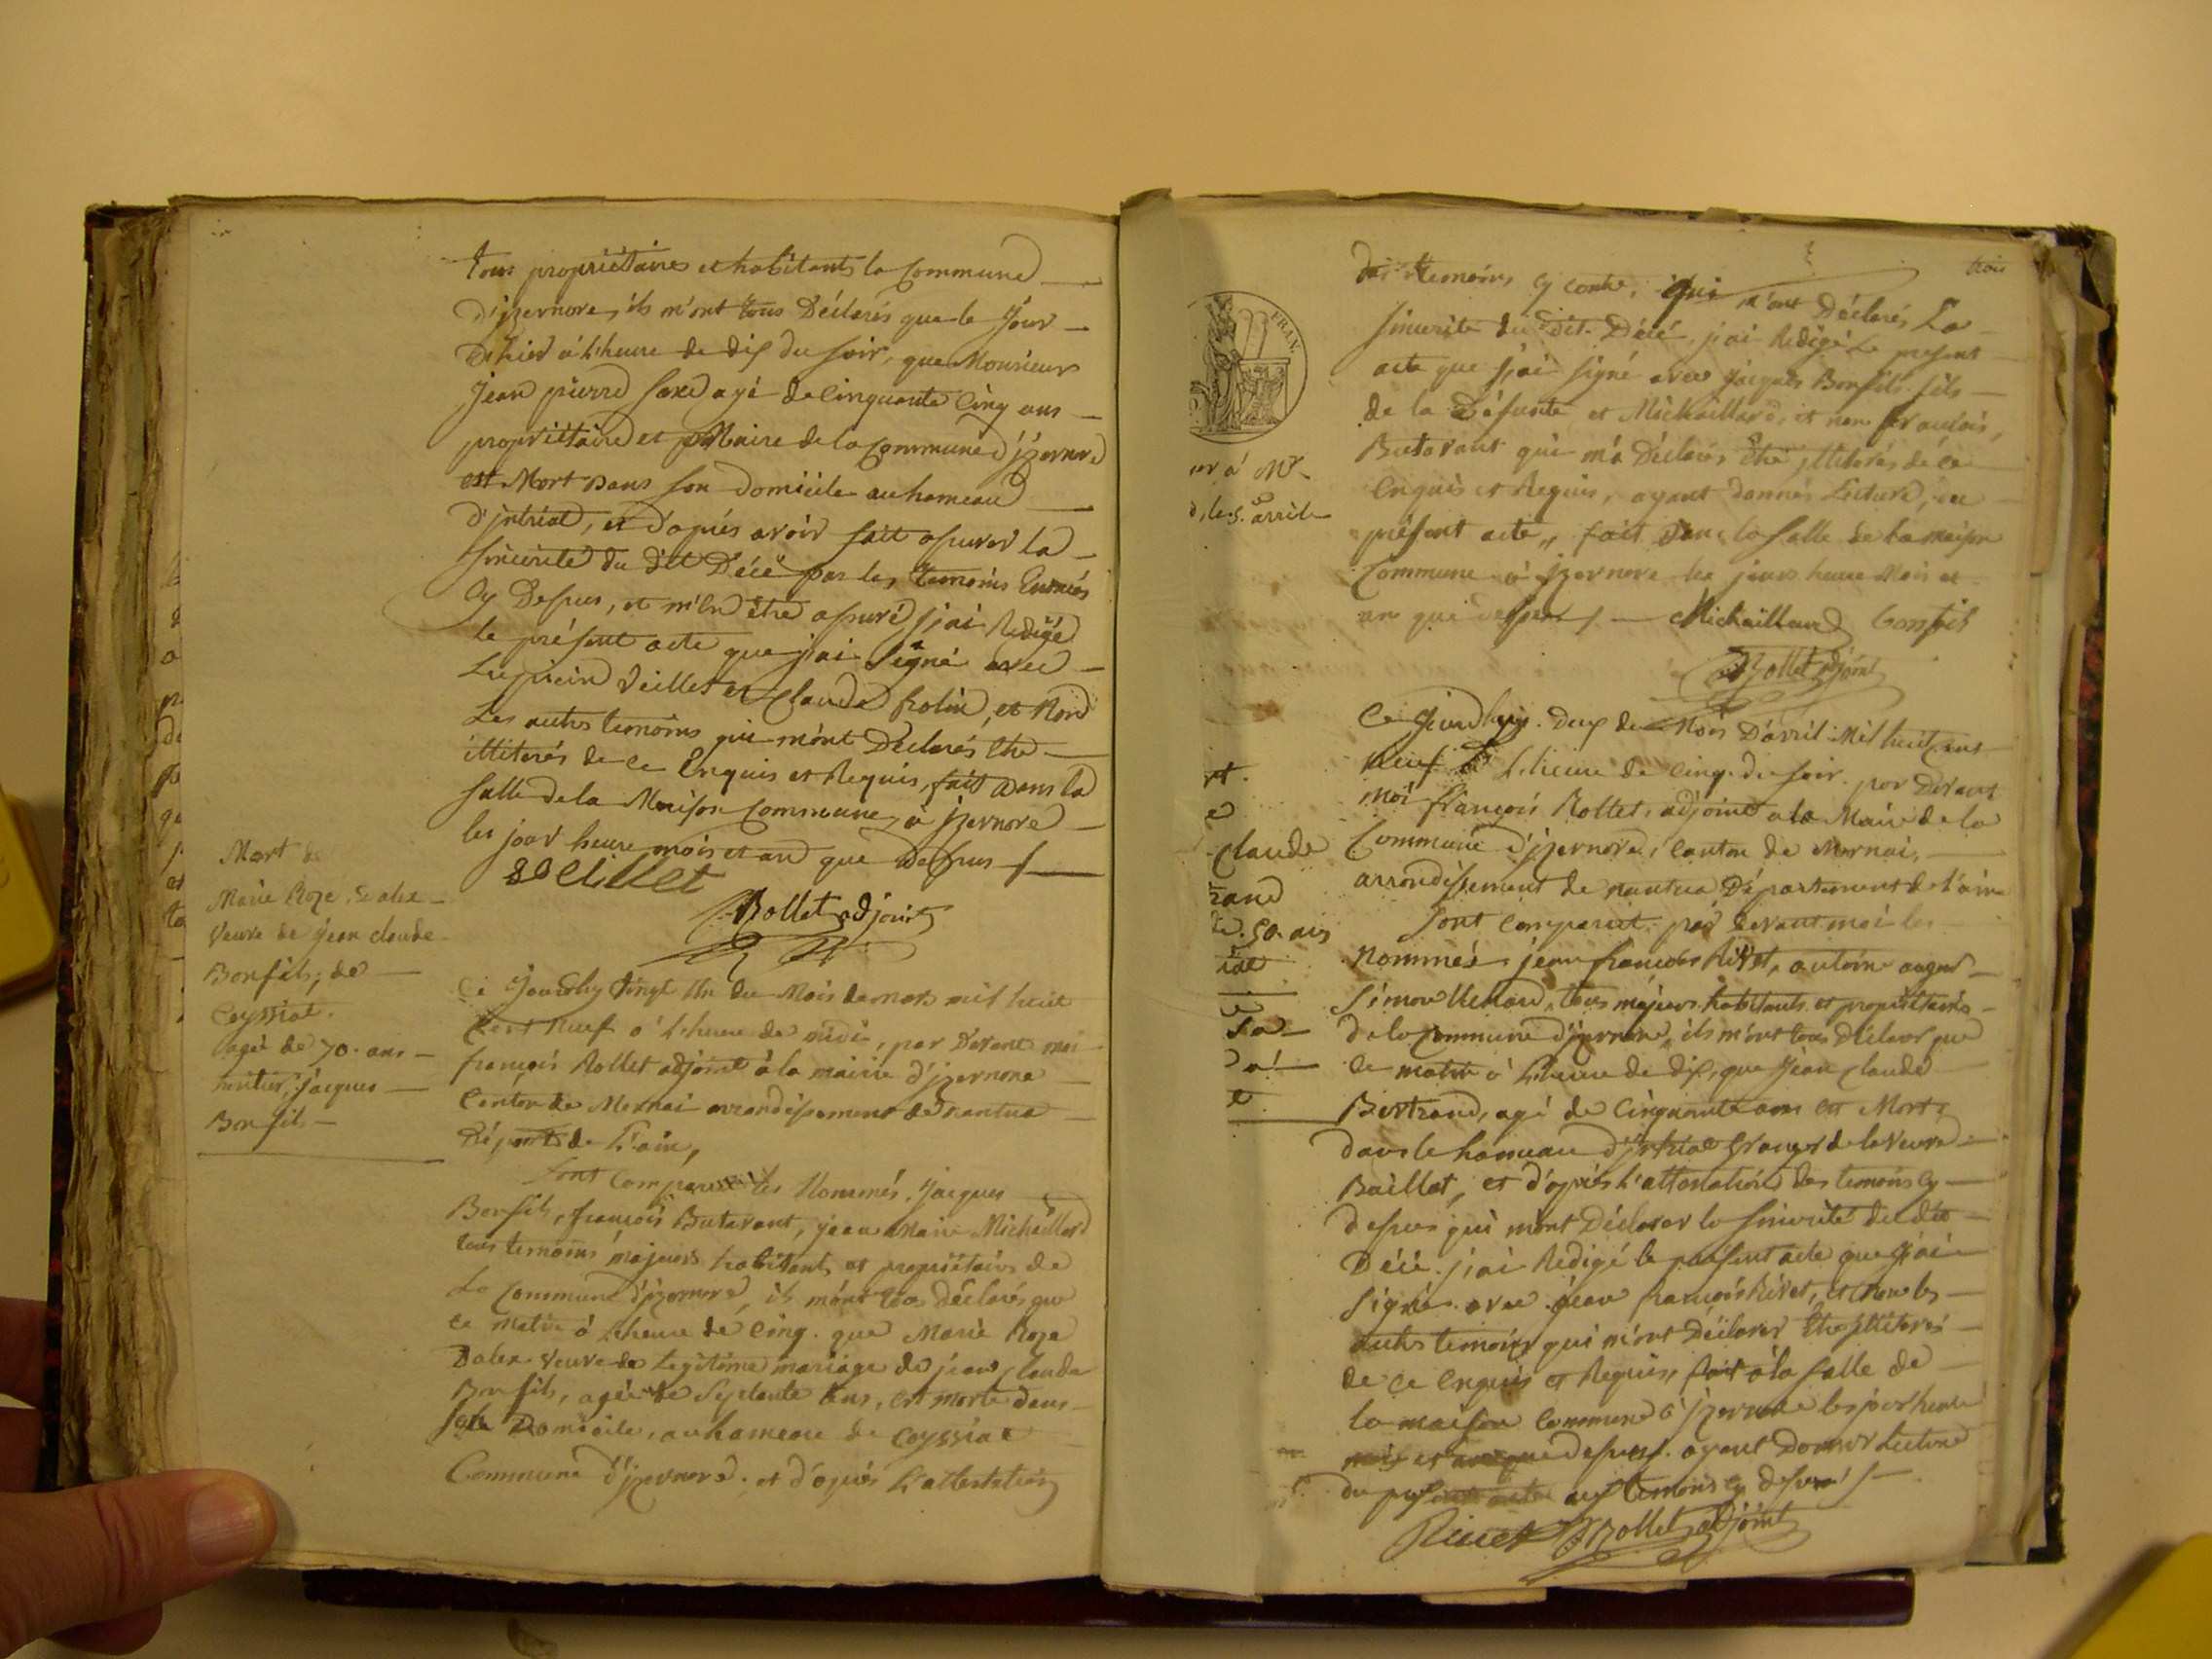 tous propriétaires et habitants la Commune
d'jzernore, ils m'ont tous Déclarés que le Jour
d'hier à L'heure de dix du soir, que Monsieur
Jean pierre agé de Cinquante Cinq ans
propriétaire et Maire de la Commune d'jzernore
est Mort Dans son domicile au hameau
d'jntriat, et d'apiés avoir fait asurer la
sincerité du dit Décé par les temoins
Cy Desus, et m'En être asuré j'ai Redigé
le présent acte que j'ai Signé avec
Veillet et Claude Rolin, et Non
Les autres temoins qui m'ont Déclarés Etre
illiterés de Ce Enquis et Requis, fait Dans la
Salle de la Maison Commune, à jzernore
les jour heure mois et an que Desus
Rollet adjoint
Ce Jourdhuy Vingt Un du Mois de mars mil huit
Cent Neuf à L'heure de midi, par Devant moi
françois Rollet adjoint à la mairie d'jzernore
Canton de Mornai arrondissement de nantua
Départ de L'ain,
Sont Comparut les Nommés Jacques
Bonfils, françois Butavant, jean Marie Michaillard
tous temoins majeurs habitants et propriétaires de
La Commune d'jzernore, ils m'ont tous Déclarés que
ce matin à L'heure de Cinq. que Marie Roze
Dalex Veuve de Legitime mariage de jean Claude
Bonfils, agée de Septante Ans, est morte dans
son Domicile, au hameau de Ceyssiat
Commune d'jzernore. et d'apiés L'attestation
Mort de
Marie Roze
Veuve de jean claude
Bonfils, de
Ceyssiat.
agée de 70. ans
jacques
Bonfils
trois
des temoins cy contre, qui m'ont Déclarés La
sincerité du dit Décé, j'ai Redigé Le present
acte que j'ai signé avec jacques Bonfils fils
de la Défunte et Michaillard, et non françois,
Butavant qui m'a Déclarés Etre jlliterés de ce
Enquis et Requis, ayant donnés Lecture, du
présent acte,, fait Dans la Salle de la maison
Commune à jzernore les jours heure Mois et
an que dessus Michaillard bonfils
Rollet adjoint
FRAN.
er à Mr
Ce Jourdhuy. Deux de Mois D'avril Mil huit cent
Neuf à L'heure de Cinq. du soir. par Devant
moi françois Rollet, adjoint a la Mairie de la
Commune d'jzernore, canton de Mornai,
arrondissement de nantua Département de l'ain
Sont Comparut par devant moi les
Nommés jean françois Rivet, antoine
Simon, tous majeurs habitants et propriétaires
de la Commune d'jzernore, ils m'ont tous Déclarer que
Ce matin à L'heure de dix, que Jean Claude
Bertrand, agé de Cinquante ans est Mort
dans le hameau d'jntriat Granger de la Veuve
Baillet, et d'apiés L'attestation des temoins Cy
desus qui m'ont Déclarer la sincerité du dit
Décé. j'ai Redigé le présent acte que j'ai
Signé avec jean françois Rivet, et Non les
autres temoins qui m'ont Déclarer Etre jlliterés
de Ce Enquis et Requis, fait à la Salle de
la maison Commune à jzernore les jour heure
mois et an que desus. ayant Donner Lecture
du présent acte aux temoins cy desus
Rivet Rollet adjoint
claude
rand
50. ans